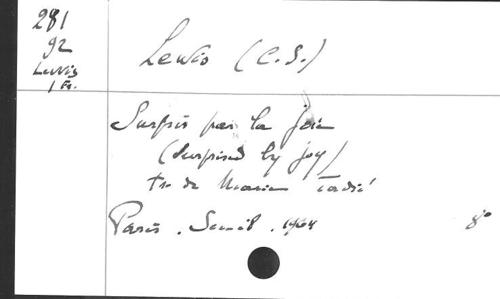 281
92
Lewis
1 Fr.
Lewis (C.S.)
Surpris par la joie
(Surprised by joy)
tr. de Marie Tadié
Paris. Seuil. 1964
8°